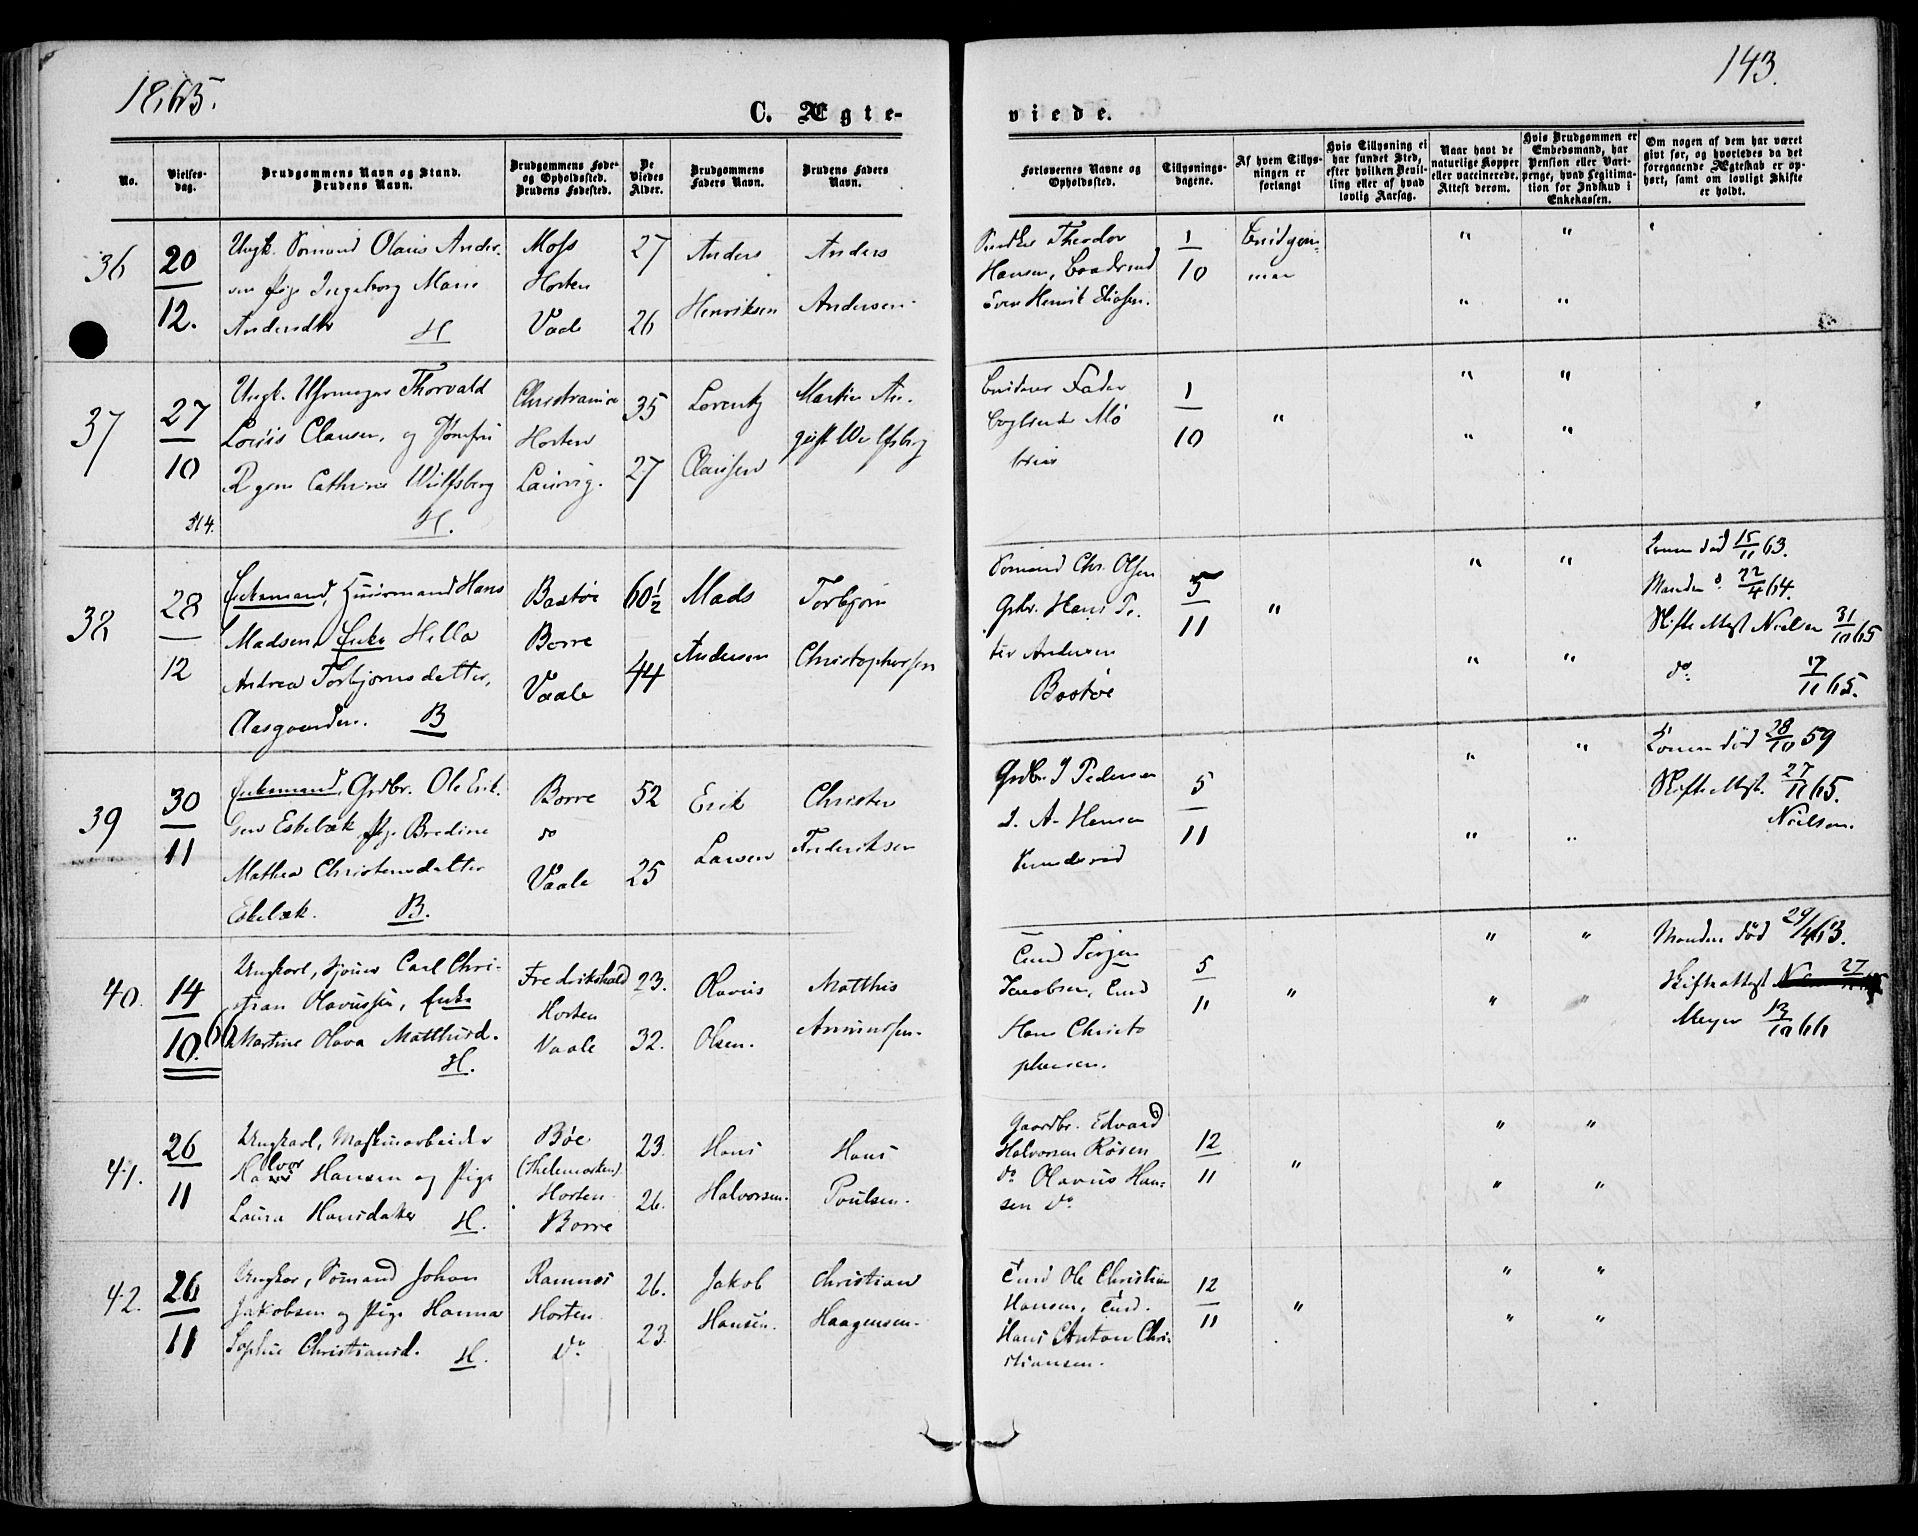 1865.
143.
C. Ægte-
viede.
No.
Vielses-
dag.
Brudgommens Navn og Stand.
Brudens Navn.
Brudgommens Føde-
og Opholdssted.
Brudens Fødested.
De
Viedes
Alder.
Brudgommens
Faders Navn.
Brudens Faders
Navn.
Forlovernes Navne og
Opholdssted.
Tillysnings-
dagene.
Af hvem Tillys-
ningen er
forlangt
Hvis Tillysning ei
har fundet Sted,
efter hvilken Bevil-
ling eller af hvad
lovlig Aarsag.
Naar havt de
naturlige Kopper
eller vaccinerede.
Attest derom.
Hvis Brudgommen er
Embedsmand, har
Pension eller Vart-
penge, hvad Legitima-
tion for Indskud i
Enkekassen.
Om nogen af dem har været
givt før, og hvorledes da det
foregaaende Ægteskab er op-
hørt, samt om lovligt Skifte
er holdt.
36
20
12.
Ungk. Sømand Olaus Ander-
sen Pige Ingeborg Marie
Andersdtr H
Moss
Horten
Vaale
27
26
Anders
Henriksen
Anders
Andersen
Theodor
Hansen,
1
10
Brudgom-
men
" "
" "
37
27
10
Ungk. Thorvald
Louis Clausen, og Jomfru
Cathrine Wulfsberg
H.
Christiania
Horten
Laurvig.
35
27
Lorentz
Clausen
Martin Au-
gust Wulfsberg
Fader
1
10
"
" "
" "
38
28
12
Enkemand, Huusmand Hans
Madsen, Enke Hella
Andrea Torbjørnsdatter,
Aasgaarden. B
Bastøe
Borre
Vaale
60½
44
Mads
Andersen
Torbjørn
Christophersen
Sømand Chr. Olsen
Grbr. Hans Pe-
ter Andersen
Bastøe
5
11
"
" "
" "
Konen død 15/11 63.
Manden d. 22/4 64.
Skifte Attest Nielsen 31/10 65
do. 17/11 65.
39
30
11
Enkemand, Grdbr. Ole Erik-
sen Eskebæk, Pige Bredine
Mathea Christensdatter
Eskebæk. B.
Borre
do
Vaale
52
25
Erik
Larsen
Christen
Frederiksen
Grdbr. J Pedersen
A. Hansen
5
11
" "
" "
Konen død 28/10 59
Skifte Attest. 27/11 65.
Nielsen.
40.
14
10.66
Ungkarl, Carl Chri-
stian Olavussen, Enke
Martine Olava Matthisd.
H.
Fredrikshald
Horten
Vaale
23.
32.
Olavus
Olsen.
Matthis
Amundsen.
Terjen
Jacobsen,
Hans Christo
phersen.
5
11
"
" "
" "
Manden død 29/4 63.
Skifteattest
Meyer 12/10 66
41.
26
11
Ungkarl, Maskinarbeider
Halvor Hansen og Pige
Laura Hansdatter H.
Bøe
(Thelemarken)
Horten
Borre
23.
26.
Hans
Halvorsen.
Hans
Poulsen.
Gaardbr. Edvard
Halvorsen Røren
do Olavus Han-
sen do
12
11
"
" "
" "
42.
26
11
Ungkar, Sømand Johan
Jakobsen og Pige Hanna
Sophie Christiansd. H.
Ramnes
Horten
do
26.
23.
Jakob
Hansen.
Christian
Haagensen.
Ole Christian
Hansen,
Hans Anton Chri-
stiansen.
12
11
"
" "
" "